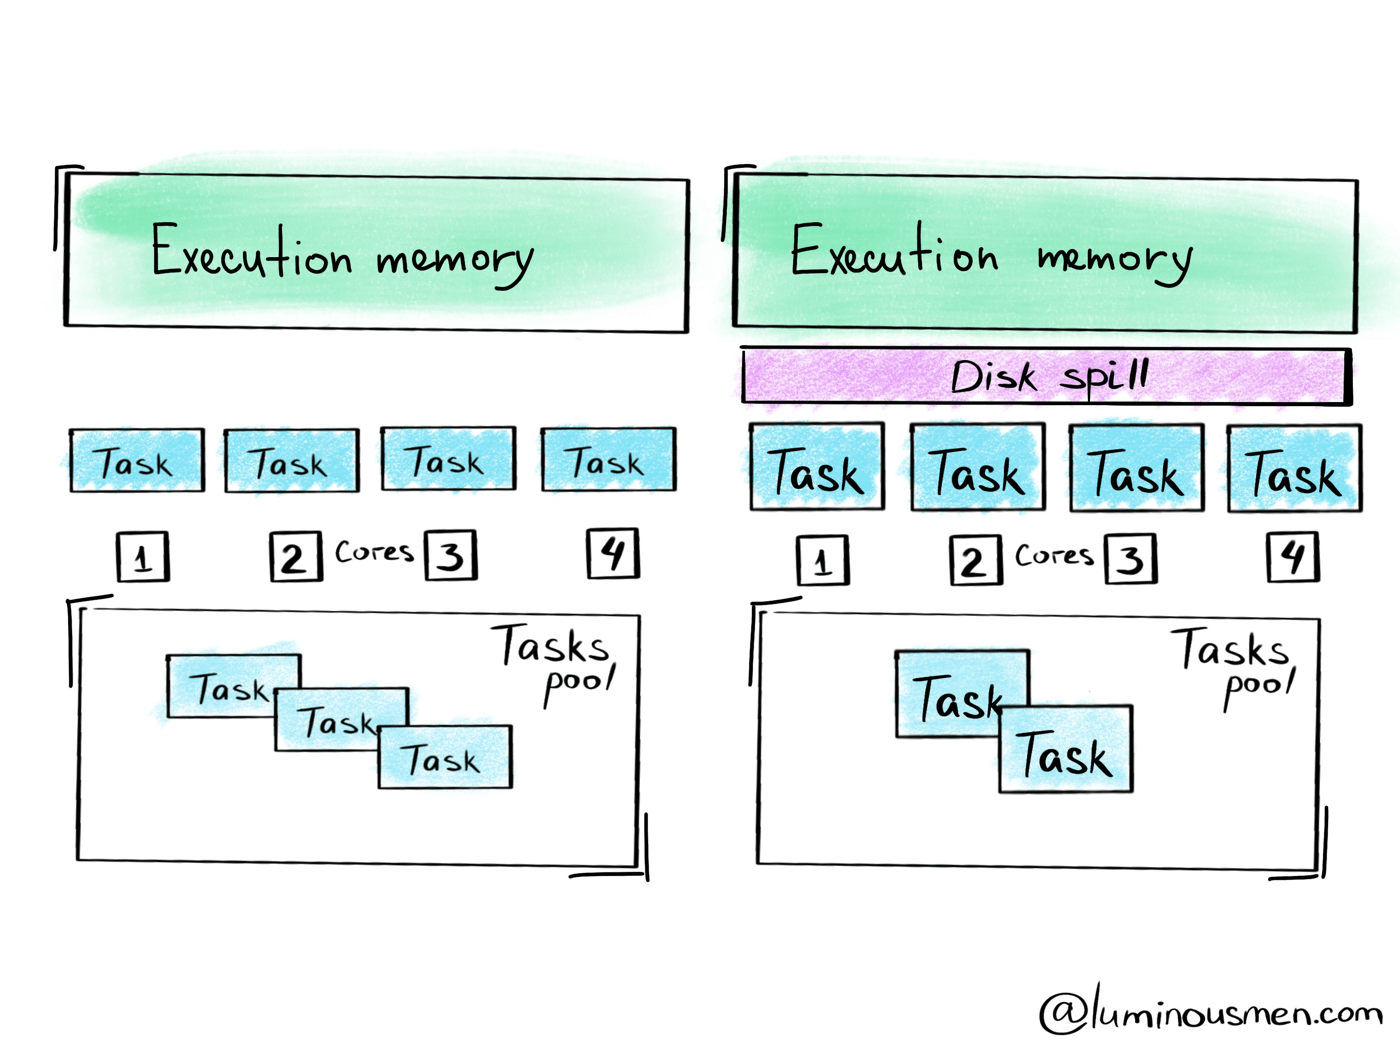 Execution memory
Task Task Task Task
1 2 Cores 3 4
Tasks
pool
Task
Task
Task
Execution memory
Disk spill
Task Task Task Task
1 2 Cores 3 4
Tasks
pool
Task
Task
@luminousmen.com